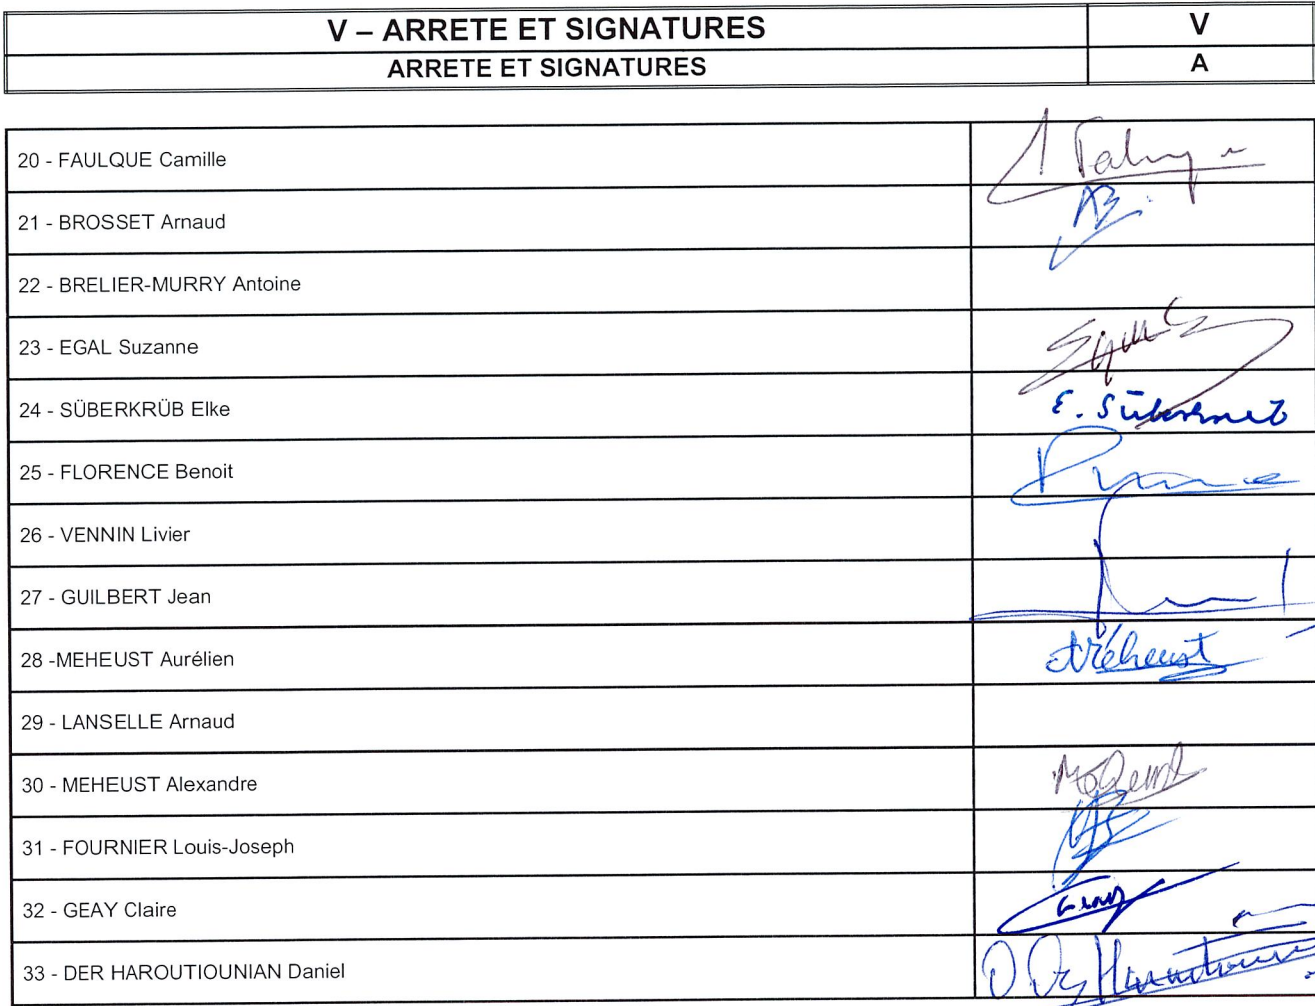 V – ARRETE ET SIGNATURES V
ARRETE ET SIGNATURES A
20 - FAULQUE Camille
21 - BROSSET Arnaud
22 - BRELIER-MURRY Antoine
23 - EGAL Suzanne
24 - SÜBERKRÜB Elke E.
25 - FLORENCE Benoit
26 - VENNIN Livier
27 - GUILBERT Jean
28 -MEHEUST Aurélien
29 - LANSELLE Arnaud
30 - MEHEUST Alexandre
31 - FOURNIER Louis-Joseph
32 - GEAY Claire
33 - DER HAROUTIOUNIAN Daniel